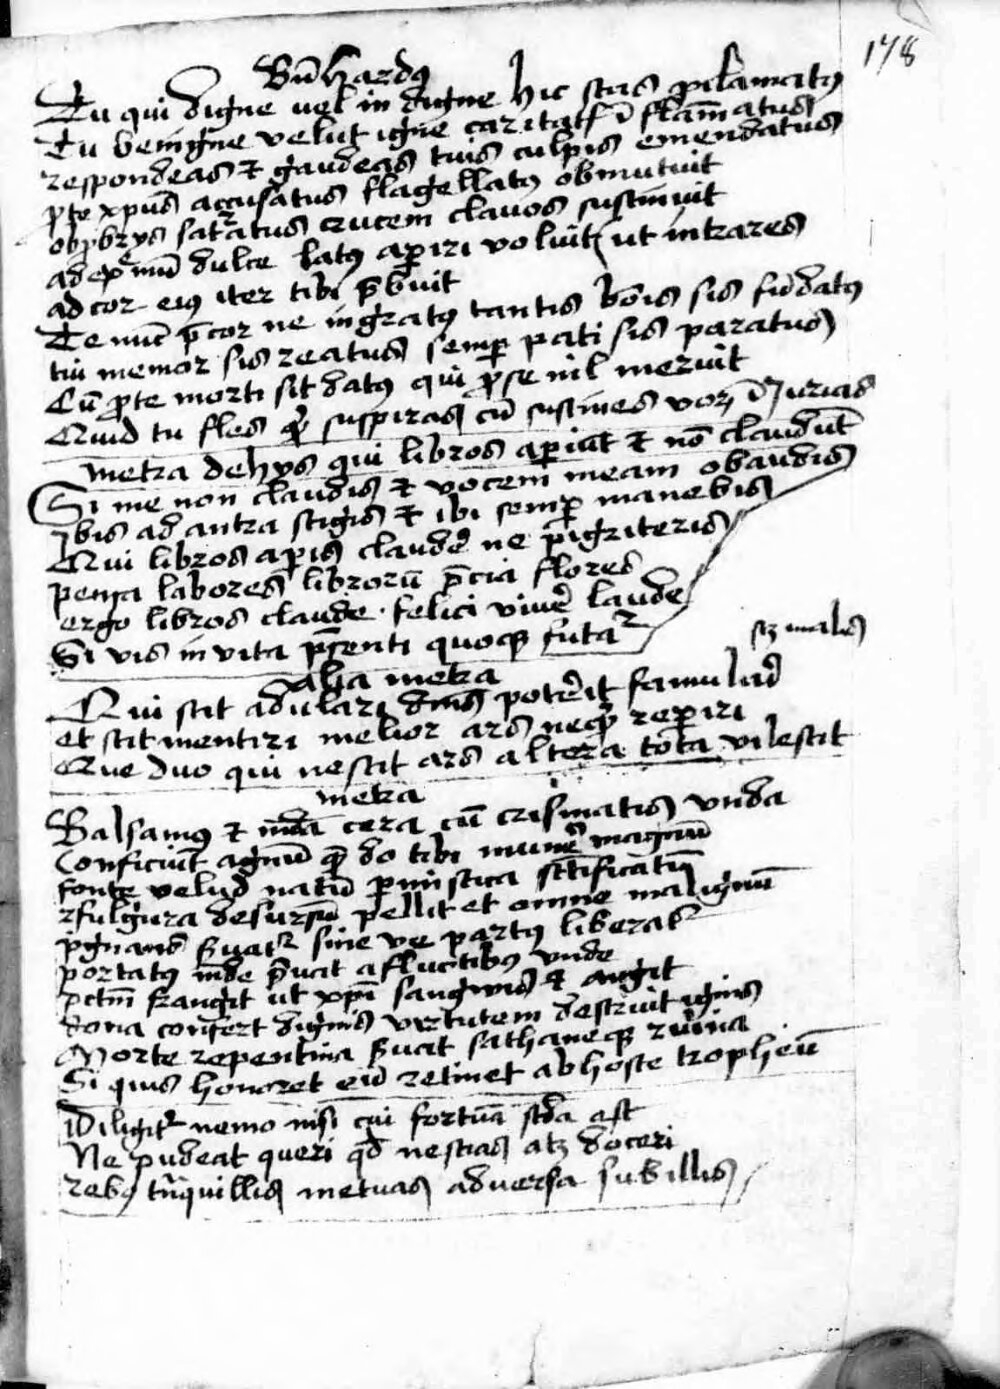 178
Bernhardus
Tu qui digne vel in digne hic stas proclamatus
Tu benigne velut igne caritatis inflammatus
respondeas et gaudeas tuis culpis emendatus
p te xpus accusatus flagellatus obmutuit
obprobrys saturatus crucem clavos sustinuit
ad extremum dulce latus aperiri voluit ut intrares
ad cor eius iter tibi prebuit
Te nunc precor ne ingratus tantis bonis sis fundatus
tui memor sis reatus semper pati sis paratus
Cum pro te morti sit datus qui pro se nil meruit
Quid tu fles quid suspiras cum sustines iniurias
metra de hys qui libros aperiunt et non claudunt
Si me non claudis et vocem meam obaudis
Ibis ad antra stigis et ibi semper manebis
Qui libros aperis claudere ne pigriteris
pensa labores librorum precia flores
ergo libros claude felici vivere laude
Si vis in vita presenti quoque futura
scz malis
Alia metra
Qui scit adulari dominis poterit famulari
et scit mentiri melior ars nequit reperiri
Que duo qui nescit ars altera tota vilescit
metra
Balsamus et munda cera cum crismatis unda
Conficiunt agnum quem do tibi munere magnum
fonte velud natum per mistica sanctificatum
fulgura desursum pellit et omne malignum
pregnans servatur sine ve partus liberatur
portatus munde servat a fluctibus unde
peccatum frangit ut xpi sanguis et angit
dona confert dignis virtutem destruit ignis
Morte repentina servat sathaneque ruina
Si quis honoret eum retinet ab hoste tropheum
Diligitur nemo nisi cui fortuna secunda est
Ne pudeat queri quod nescias atz doceri
rebus tranquillis metuas adversa sub illis